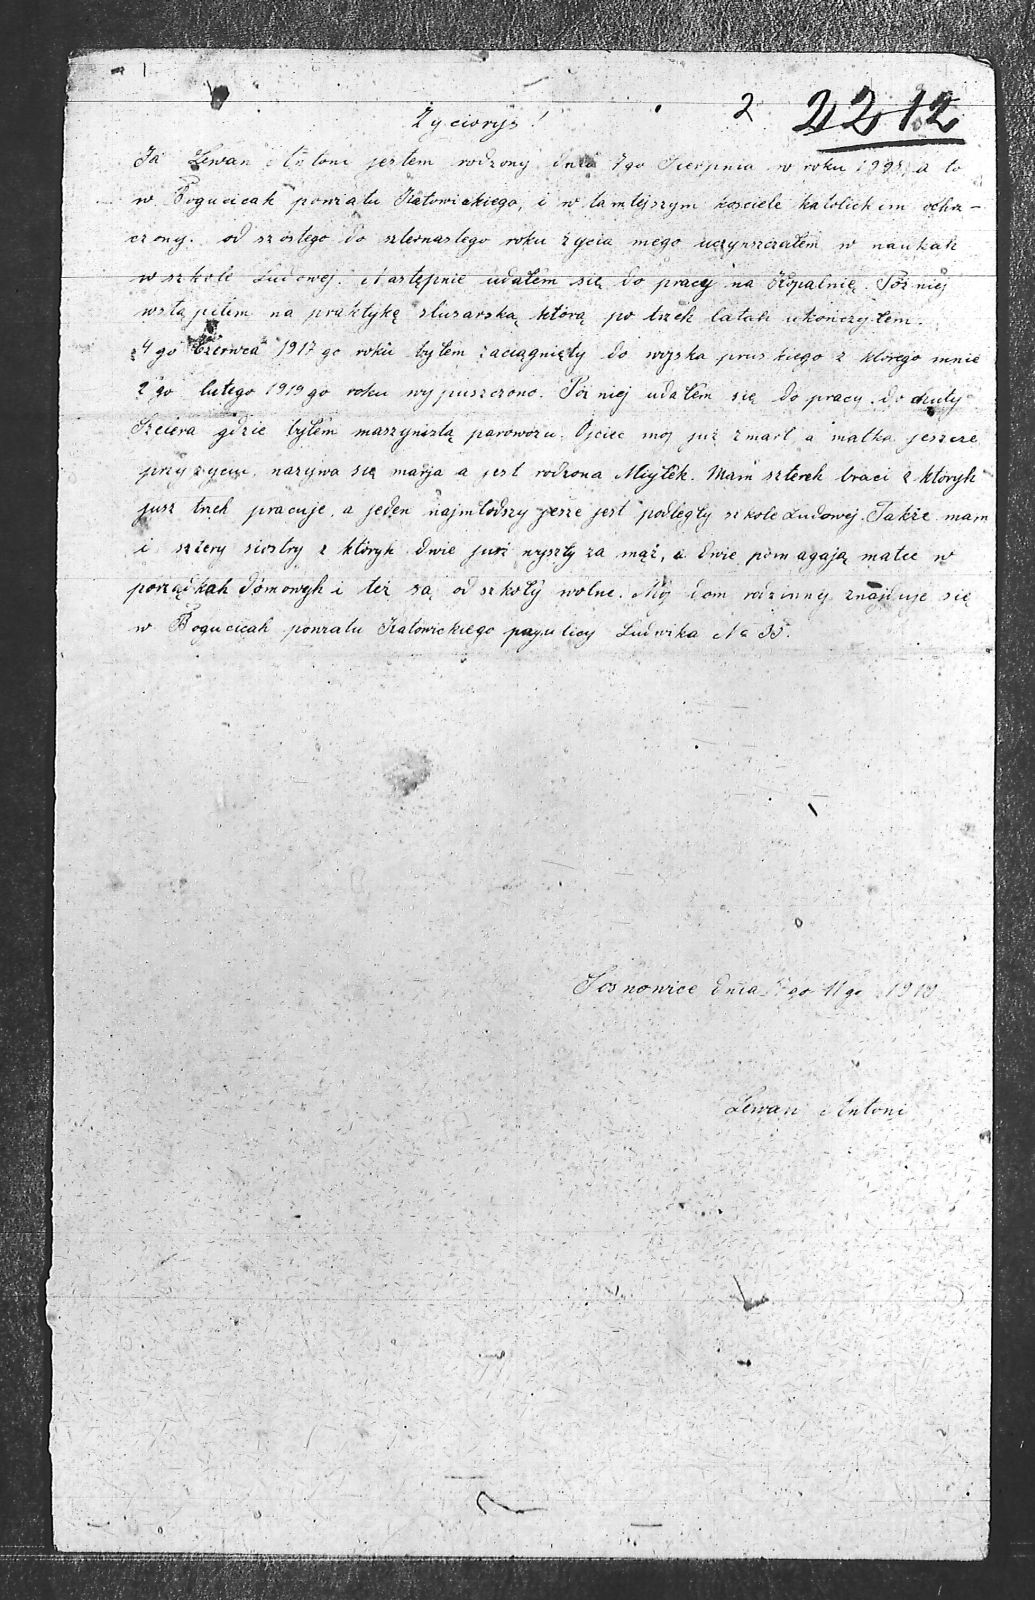 2 2212
Życiorys!
Ja Lewan Antoni jestem rodzony dnia 7go Sierpnia w roku a to
w Bogucicah powiatu Katowickiego, i w tamtejszym kosciele katolickim ochrz-
czony. od szóstego do szternastego roku życia mego uczynszczałem w naukah
w szkole Ludowej. Następnie udałem się do pracy na Kopalnię. Póżniej
wstąpiłem na praktykę slusarską którą po trzeh latah ukończyłem.
4go Czerwca 1917go roku byłem zaciągnięty do wojska pruskiego z kturego mnie
2go lutego 1919go roku wypuszczono. Póżniej udałem się do pracy do
gdzie byłem maszynistą parowozu. Ojciec mój już zmarł a matka jeszcze
przy życiu, nazywa się marja a jest rodzona Miytek. Mam szterek braci z któryh
jusz trzeh pracuje, a jeden najmłodszy jesze jest podległy szkole Ludowej. Także mam
i sztery siostry z któryh dwie już wyszły za mąż, a dwie pomagają matce w
porządkah dómowyh i też są od szkoły wolne. Mój dom rodzinny znajduje się
w Bogucicah powiatu Katowickiego przy ulicy Ludwika No 35.
Sosnowice dnia 11go 1919
Lewan Antoni